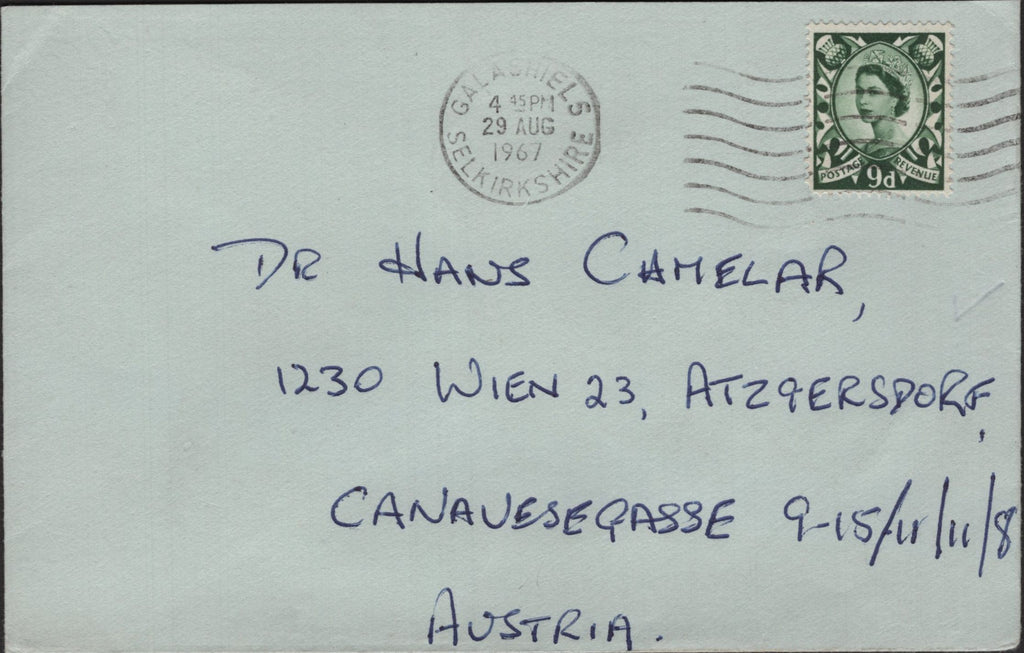 GALASHIELS
4 45 PM
29 AUG
1967
SELKIRKSHIRE
POSTAGE REVENUE
9d
DR HANS CAMELAR,
1230 WIEN 23, ATZGERSDORF,
CANAVESEGASSE 9-15/11/11/8
AUSTRIA.